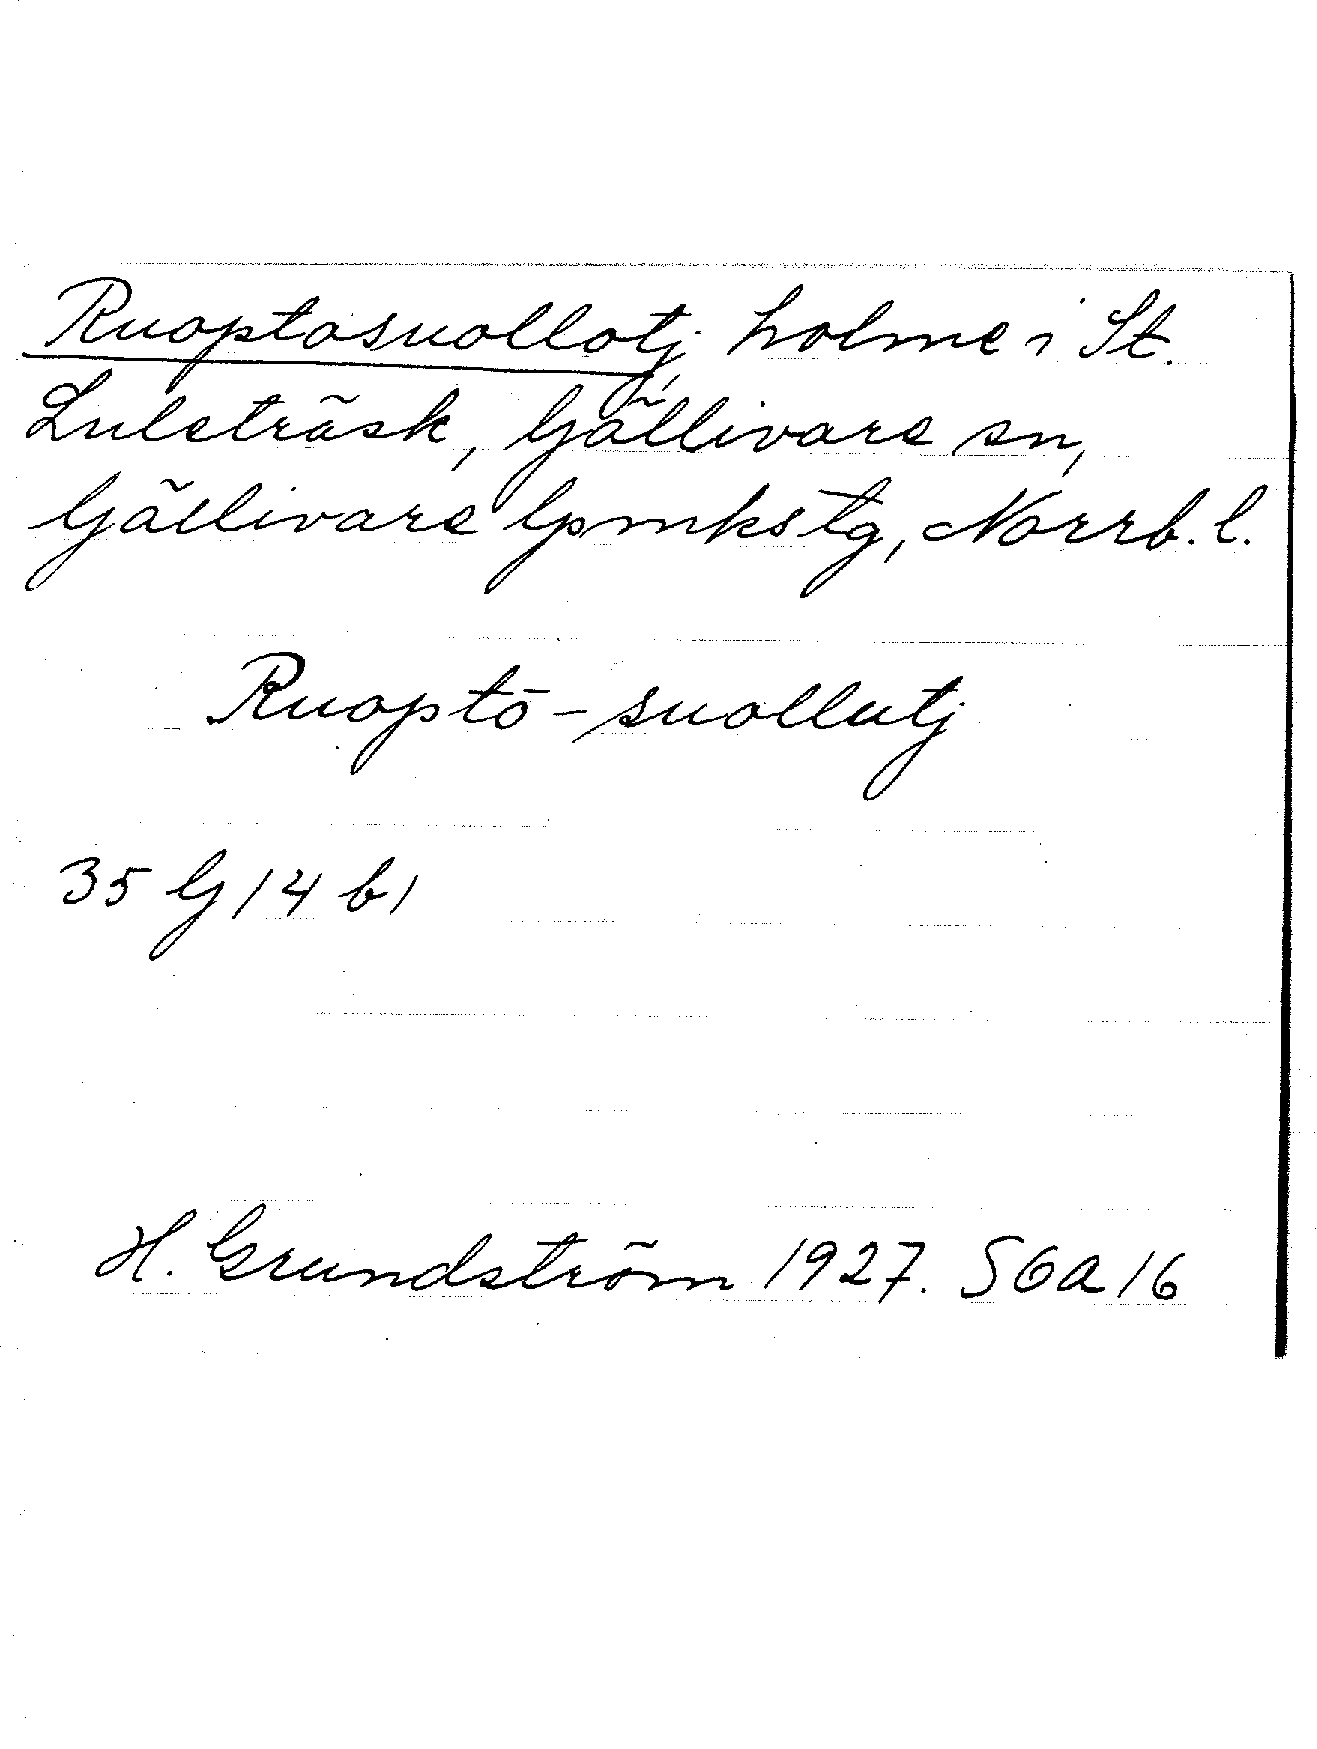 Ruoptosuollotj, holme i St.
Luleträsk, Gällivare sn,
Gällivare lpmkstg, Norrb. l.
Ruoptō-suollutj
35 G 14 b 1
H. Grundström 1927. SGA 16